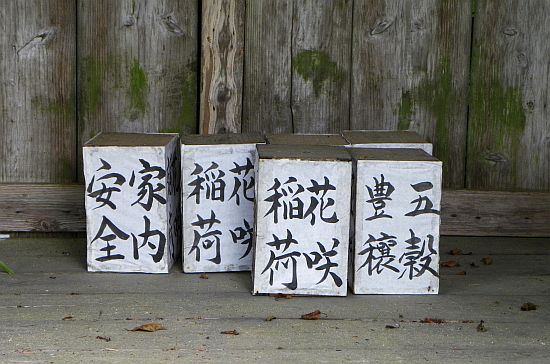 家内
安全
花咲
稲荷
花咲
稲荷
五穀
豊穣